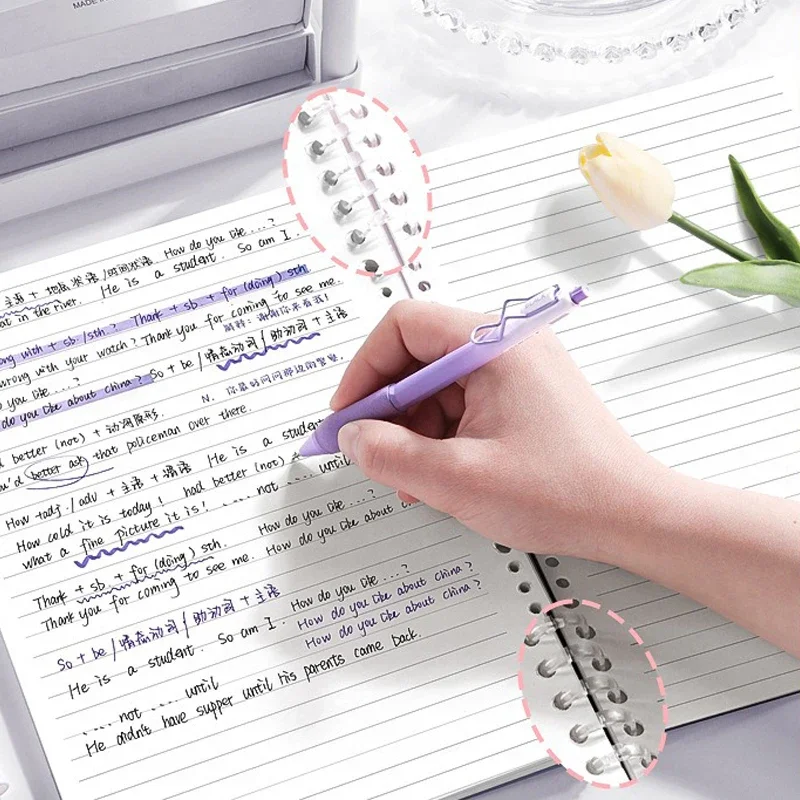 MADE IN
主语 + 地点状语/时间状语 How do you like ....?
at in the river. He is a student. So am I.
ong with + sb./sth? Thank + sb + for (doing) sth
wrong with your watch? Thank you for coming to see me.
翻译: 谢谢你来看我!
o you like ....? So + be /情态动词/助动词 + 主语
do you like about china?
N. 你最好问问那边的警察.
d better (not) + 动词原形.
ou'd better ask that policeman over there.
How +adj./adv + 主语 + 谓语 He is a student
How cold it is today! had better (not) +
what a fine picture it is! ..... not ..... until
Thank + sb. + for (doing) sth. How do you like ....?
Thank you for coming to see me. How do you like about c
So + be /情态动词/助动词 + 主语 How do you like ....?
He is a student. So am I. How do you like about china?
How do you like about china?
..... not ..... until
He didn't have supper until his parents came back.